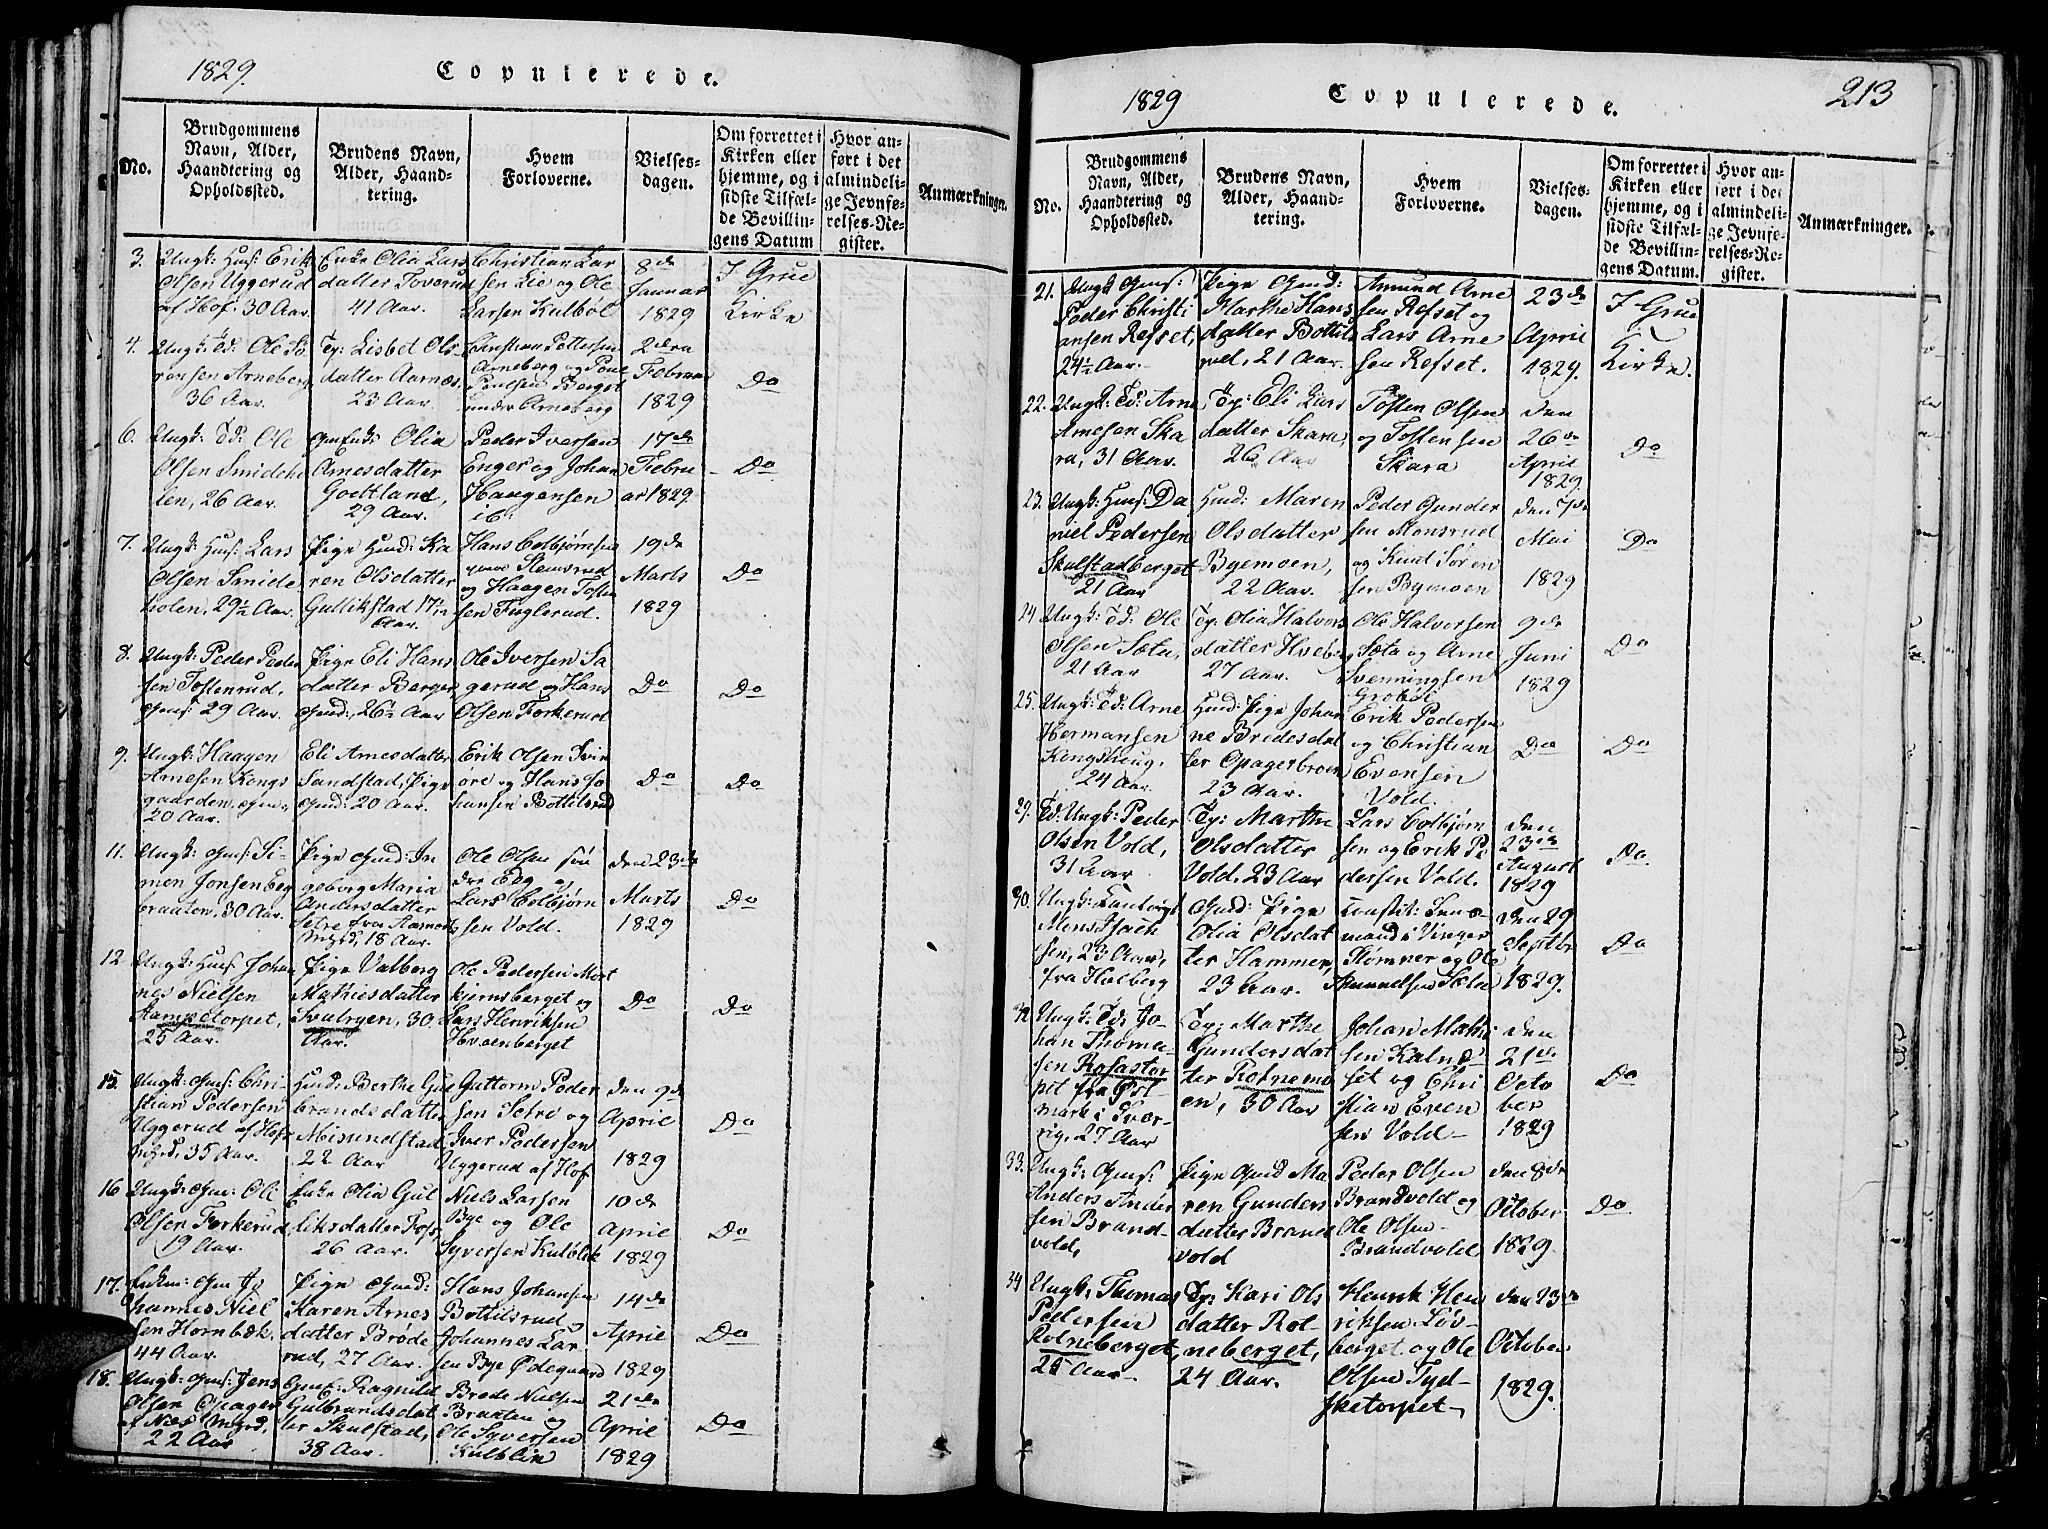 1829. Copulerede.
No.
Brudgommens
Navn, Alder,
Haandtering og
Opholdssted.
Brudens Navn,
Alder, Haand-
tering.
Hvem
Forloverne.
Vielses-
dagen.
Om forrettet i
Kirken eller
hjemme, og i
sidste Tilfæl-
de Bevillin-
gens Datum
Hvor an-
ført i det
almindeli-
ge Jevnfø-
relses-Re-
gister.
Anmærkninger.
3. Ungk: Huus: Erik
Olsen Uggerud
af Hof. 30 Aar.
Enke Olia Lars
datter Toverud
41 Aar.
Christian Lar
sen Lie og Ole
Larsen Kulböl
8de
Januar
1829
I Grue
Kirke
4. Ungk: Td: Ole Sö
rensen Arneberg
36 Aar.
Tp: Lisbet Ols-
datter Aarnæs
23 Aar.
Christian Pettersen
Arneberg og Poul
Poulsen Berget
under Arneberg
2den
Februar
1829
Do
6. Ungk: Td: Ole
Olsen Smideho
len, 26 Aar.
Olia
Arnesdatter
Godtland,
29 Aar.
Peder Iversen
Enger og Johan
Haagensen
ib:
17de
Febru
ar 1829.
Do
7. Ungk: Huus: Lars
Olsen Smide
holen, 29½ Aar.
Pige Huusd: Ka
ren Olsdatter
Gulliksted 17½
Aar.
Hans Colbjørnsen
Slemsrud
og Haagen Tosten
sen Fuglerud.
19de
Marts
1829
Do
8. Ungk: Peder Peder
sen Tostenrud,
Gms: 29 Aar.
Pige Eli Hans
datter Berger,
Gmd:, 26½ Aar
Ole Iversen Sa
gerud og Hans
Olsen Forkerud
Do
Do
9. Ungk: Haagen
Arnesen Kongs
gaarden, Gm:,
20 Aar.
Eli Arnesdatter
Sandstad, Pige
Gmd: 20 Aar.
Erik Olsen Svin
öre og Hans Jo
hansen Bottilsrud
Do
Do
11. Ungk: Gms: Si-
men Jonsen Ber
braaten, 30 Aar.
Pige Gmd: In
geborg Maria
Andersdatter
Setre fra Aasnes
18 Aar.
Ole Olsen söe
dre Eeg og
Lars Colbjørn
sen Vold.
den 23de
Marts
1829
Do
12. Ungk: Huus: Johan
nes Nielsen
Aampetorpet,
25 Aar.
Pige Valborg
Mathiesdatter
Svulryen, 30
Aar.
Ole Pedersen Mort
kjernsberget og
Lars Henriksen
Hvænberget
Do
Do
15. Ungk: Gms: Chri-
stian Pedersen
Uggerud af Hofs
35 Aar.
Huusd: Berthe Gul
brandsdatter
Misundstad,
22 Aar
Guttorm Peder
sen Setre og
Iver Pedersen
Uggerud af Hof
den 9de
April
1829
Do
16 Ungk: Gm: Ole
Olsen Forkerud,
19 Aar.
Enke Olia Gul
liksdatter Foss,
26 Aar.
Niels Larsen
Bye og Ole
Syversen Kulblik
10de
April
1829
Do
17. Enkm: Gm Jo
hannes Niel
sen Hornbæk.
44 Aar.
Pige Gmd:
Karen Arnes
datter Brode
rud, 27 Aar.
Hans Johansen
Bottilsrud
Johannes Lar
sen Bye Ödegaard
14de
April
1829
Do
18. Ungk: Gms: Jens
Olsen Opager
22 Aar
Ragnild
Gulbrandsdat
ter Skulstad,
38 Aar.
Brede Nielsen
Braaten og
Ole Syversen
Kulblik
21de
April
1829
Do
1829 Copulerede. 213
No.
Brudgommens
Navn, Alder,
Haandtering og
Opholdssted.
Brudens Navn,
Alder, Haand-
tering.
Hvem
Forloverne.
Vielses-
dagen.
Om forrettet i
Kirken eller
hjemme, og i
sidste Tilfæl-
de Bevillin-
gens Datum.
Hvor an-
ført i det
almindeli-
ge Jevnfø-
relses-Re-
gister.
Anmærkninger.
21. Ungk Gms:
Peder Christi
ansen Refset,
24½ Aar.
Pige Gmd:
Marthe Hans
datter Bottils
rud, 21 Aar.
Amund Arne
sen Refset og
Lars Arne
sen Refset.
23de
April
1829.
I Grue
Kirke.
22. Ungk: Td: Arne
Arnesen Ska
ra, 31 Aar.
Tp: Eli Lars
datter Skara,
26 Aar
Tosten Olsen
og Tostensen
Skara
den
26de
April
1829.
Do
23. Ungk: Huus: Da
niel Pedersen
Skulstadberget
21 Aar
Huusd: Maren
Olsdatter
Byemoen,
22 Aar.
Peder Gunder
sen Monsrud
og Knud Sören
sen Byemoen
den 7de
Mai
1829
Do
24 Ungk: Td: Ole
Olsen Sæta,
21 Aar
Tp: Olia Halvors
datter Hveberg
27 Aar.
Ole Halvorsen
Sæta og Arne
Svenningsen
Grøsset
9de
Juni
1829
Do
25. Ungk: Td: Arne
Hermansen
Kongshaug,
24 Aar.
Huusd: Pige Johan
ne Bredesdat
ter Opagerbroen
23 Aar.
Erik Pedersen
og Christian
Evensen
Vold.
Do
Do
29. Td: Ungk: Peder
Olsen Vold,
31 Aar
Tp: Marthe
Olsdatter
Vold, 23 Aar
Lars Colbjørn
sen og Erik Pe
dersen Vold.
den
23de
August
1829
Do.
30. Ungk:
sen, 23 Aar,
fra Holberg
Gmd: Pige
Olia Olsdat
ter Hammer,
23 Aar.
Constit: Lens-
mand i Vinger
Stömner og Ole
Amundsen Sæter
den 29
Septbr
1829.
Do
32 Ungk: Td: Jo-
han Thoma-
sen Rofastor
pet fra Öst
mark i Sver-
rig, 27 Aar
Tp: Marthe
Gundersdat
ter Rotnemo
en, 30 Aar
Johan Mathi
sen Kalnæs
set og Chri
stian Even
sen Vold-
den
21de
Octo
ber
1829
Do
33. Ungk: Gms:
Anders Ander
sen Brand-
vold,
Pige Gmd Ma
ren Gunders
datter Brand
vold
Peder Olsen
Brandvold og
Ole Olsen
Brandvold
den 8de
October
1829.
Do
34 Ungk: Thomas
Pedersen
Rotneberget,
25 Aar.
Tp: Kari Ols
datter Rot-
neberget,
24 Aar.
Henrik Hen
riksen Löv-
berget og Ole
Olsen Tyd-
sketorpet
den 23de
October
1829.